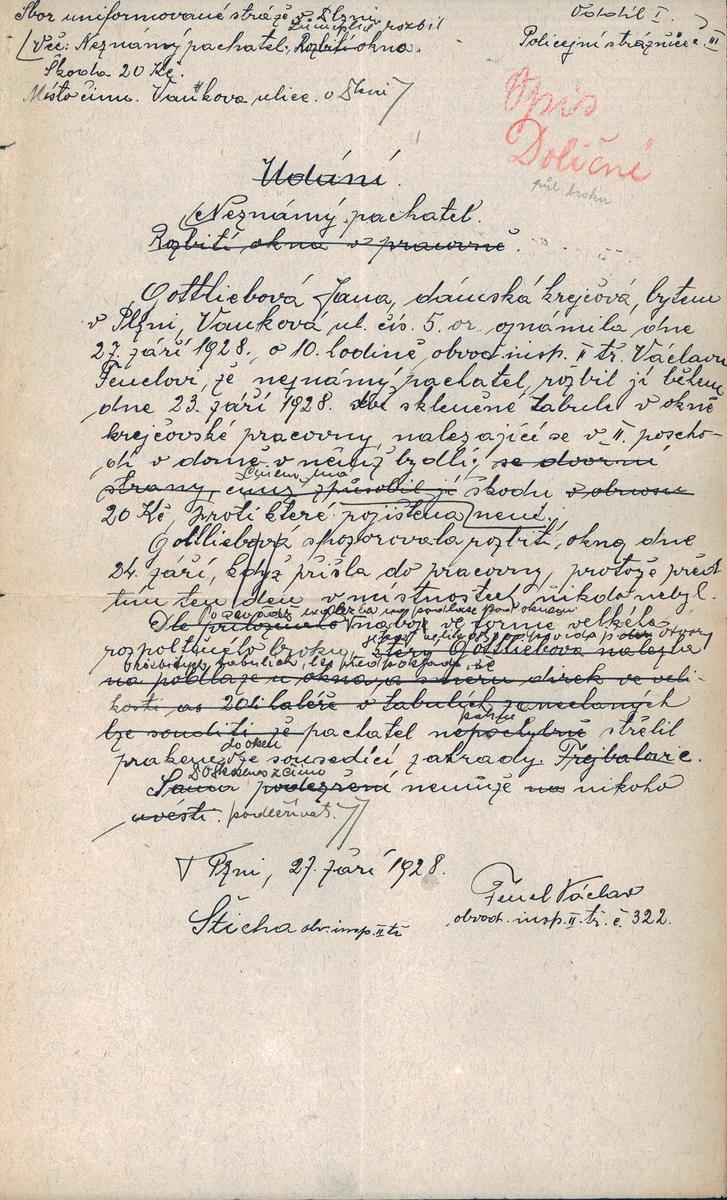 Sbor uniformované stráže v Plzni.
Oddíl I.
Policejní strážnice č. III
Úmyslně rozbil
Věc: Neznámý pachatel, Rozbití okna.
Škoda 20 Kč.
Místo činu. Vaňkova ulice. v Plzni
Opis
Doličné
půl broku
Udání.
Neznámý pachatel.
Rozbití okna v pracovně.
Gottliebová Jana, dámská krejčová, bytem
v Plzni, Vaňková ul. čís. 5. or. oznámila dne
27. září 1928. o 10. hodině obvod. insp. II tř. Václavu
Fenclovi, že neznámý pachatel, rozbil jí během
dne 23. září 1928. dvě skleněné tabule v okně
krejčovské pracovny, nalezající se v II. poscho-
dí v domě v němž bydlí, se dvorní
strany, čímž způsobil jí škodu v obnosu
20 Kč, proti které pojištěna není.
Gottliebová zpozorovala rozbití okna dne
24. září, když přišla do pracovny, protože před
tím ten den v místnostech nikdo nebyl.
Dle náboje ve formě velkého
rozpoltěného broku, který Gottliebová nalezla
otvory
rozbitých tabulích, lze předpokládati, že
na podlaze u okna, a směru direk ve veli-
kosti as 20ti haléře v tabulích zanechaných
lze souditi že pachatel nepochybně střílil
do oken
prakem ze sousedící zahrady. Frejbalovic.
Sama podezření nemůže na nikoho
uvésti. podezřívat.
V Plzni, 27. září 1928.
Fencl Václav
obvod. insp. II. tř. č. 322.
Šticha obv. insp. II tř